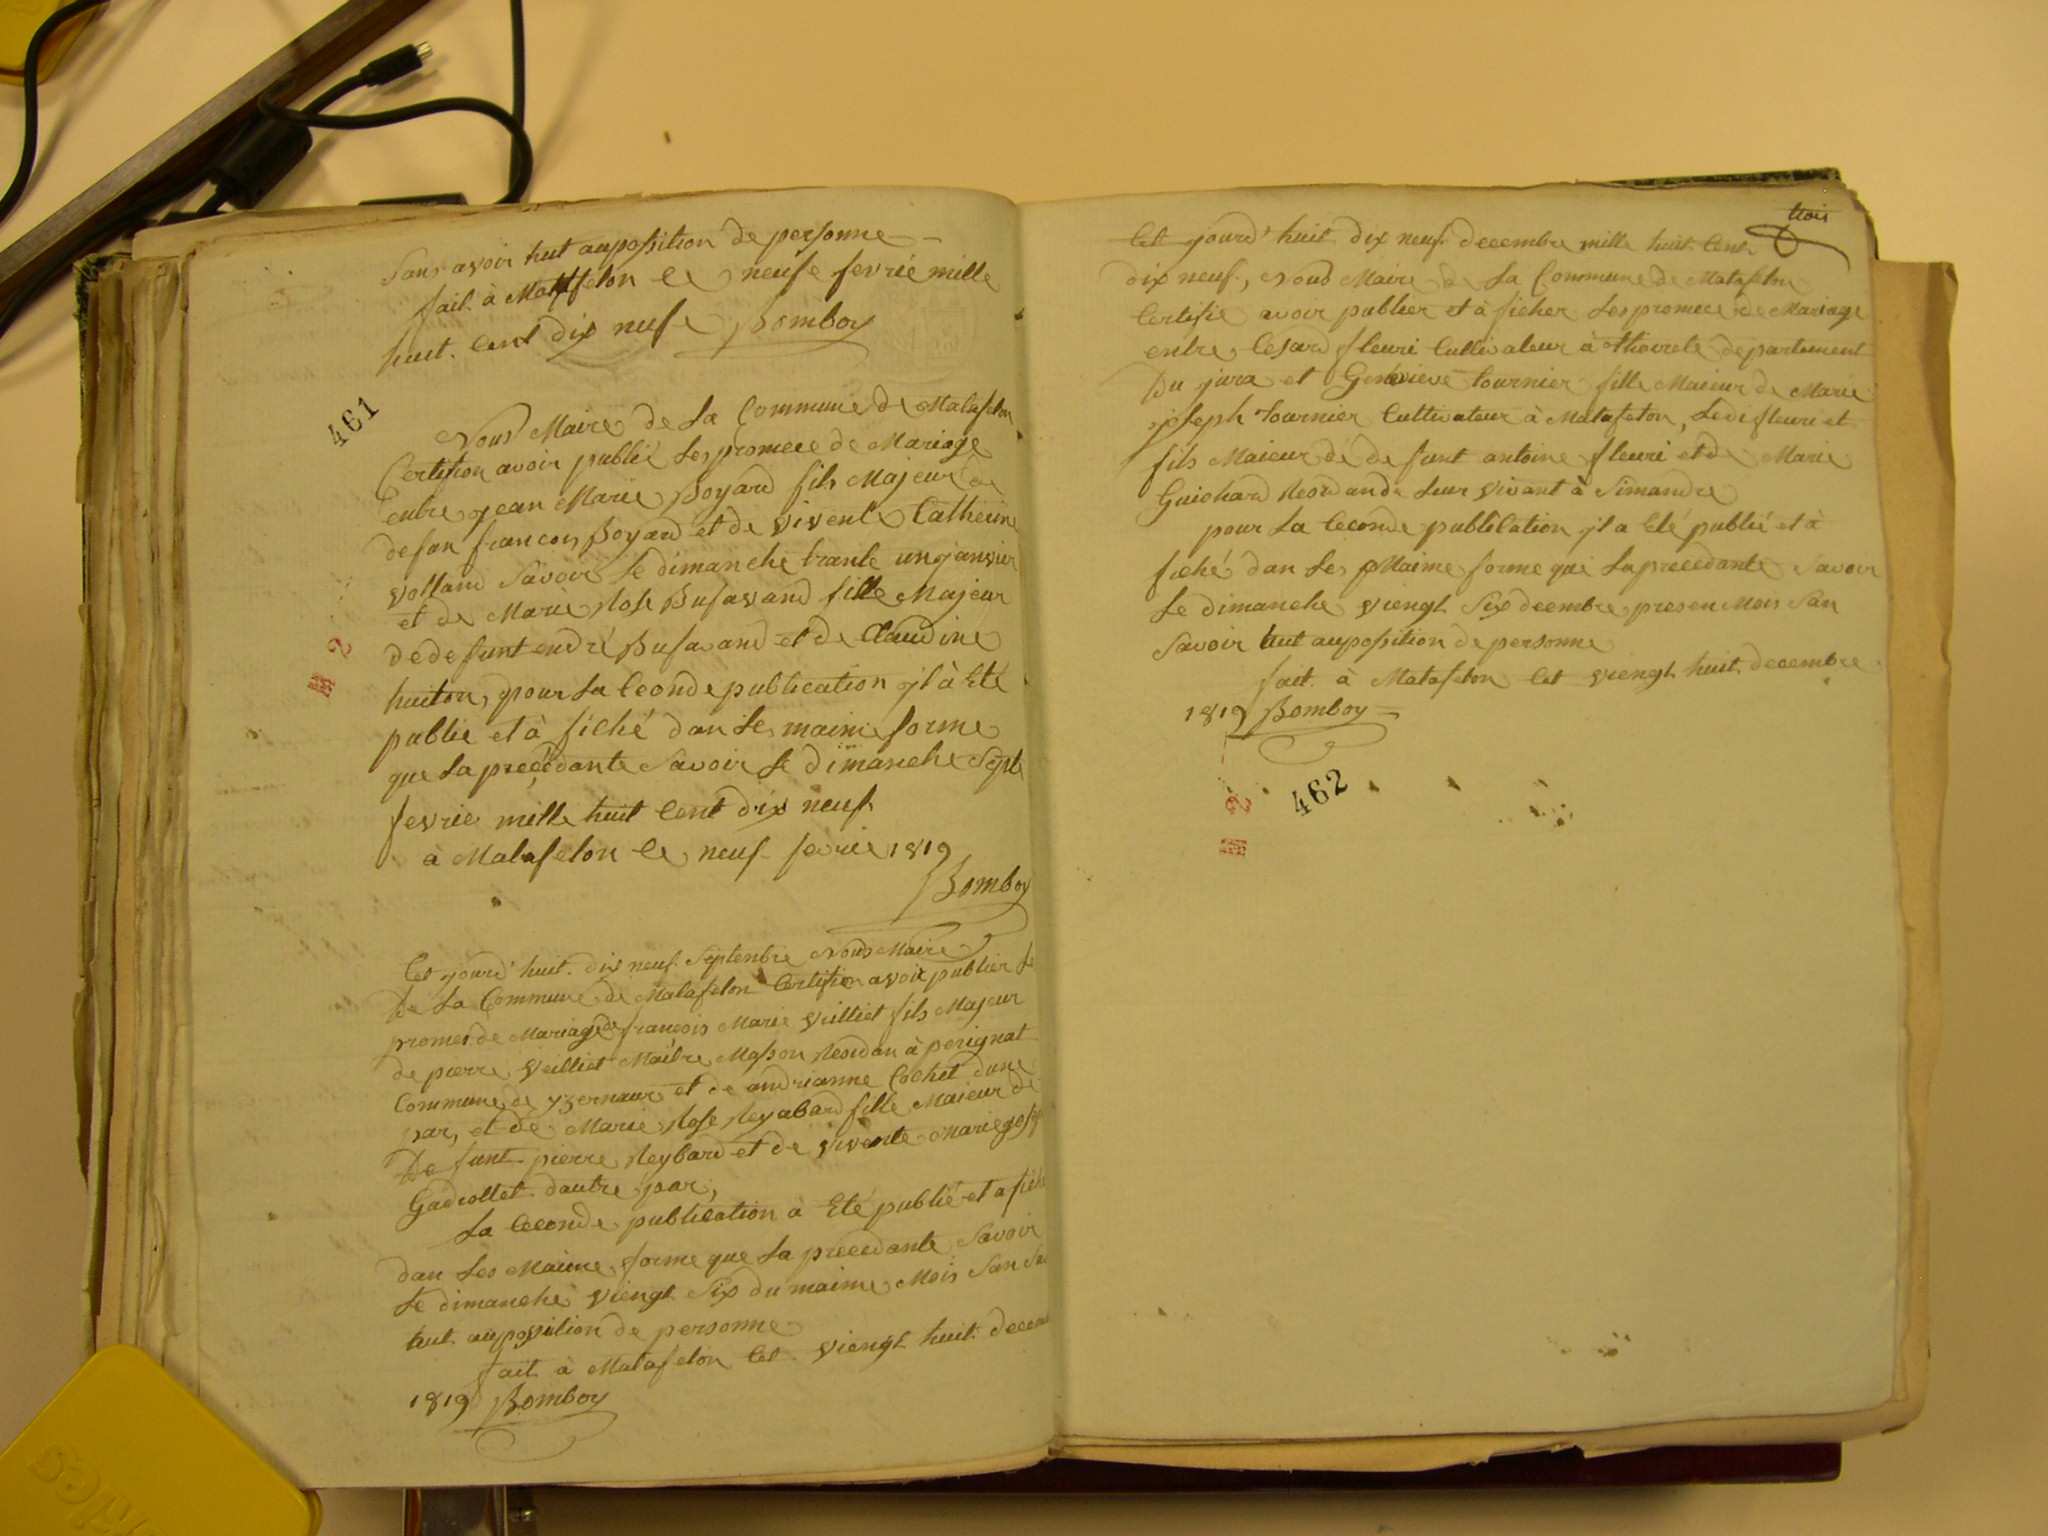 Sans avoir hut auposition de personne
fait à Matafelon le neufe fevrié mille
huit Cent dix neufe Bomboy
461
Nous Maire de La Commune de Matafelon
Certifion avoir publié Les promece de Mariage
entre jean Marie Boyard fils Majeur de
defan francois Boyard et de vivente Catherine
volland Savoir Le dimanche trante un janvier
et de Marie Rose Bufavand fille Majeur
de defunt endré Bufavand et de Claudine
huiton, pour La Ceconde publication il à Eté
publié et à fiché dan Le maime forme
que La precedante Savoir Le dimanche Septe
fevrie mille huit Cent dix neuf
à Matafelon le neuf fevrie 1819
Bomboy
Cet jourd'huit dix neuf Septenbre Nous Maire
De La Commune de Matafelon Certifion avoir publier Le
promes de Mariage de francois Marie Veilliet fils Majeur
de pierre Veilliet Maitre Masson Resedan à perignat
Commune de yzernaur et de andrianne Cochet dune
par, et de Marie Rose Reyabard fille Maieur de
De funt pierre Reybard et de vivente Marie josep
Gadiollet dautre par,
La Ceconde publication à Eté publié et a fiché
dan Les Maime forme que La precedante Savoir
Le dimanche viengt Six du maime Mois San
hut auposition de personne
fait à Matafelon Cet viengt huit decem
1819 Bomboy
trois
Cet jourd'huit dix neuf decembre mille huit Cent
dix neuf, Nous Maire de La Commune de Matafelon
Certifie avoir publier et à ficher Les promece de Mariage
entre Cesard fleuri Cultivateur à thoirete departement
Du jura et Genevieve tournier fille Maieur de Marie
joseph tournier Cultivateur à Matafelon, Ledi fleuri et
fils Maieur de defunt antoine fleuri et de Marie
Guichard Resedande Leur vivant à Simandre
pour La Ceconde publication il a Eté publié et à
fiché dan Les Maime forme que La precedante Savoir
Le dimanche viengt Six decembre presen Mois San
Savoir hut auposition de personne
fait à Matafelon Cet viengt huit decembre
1819 Bomboy
462